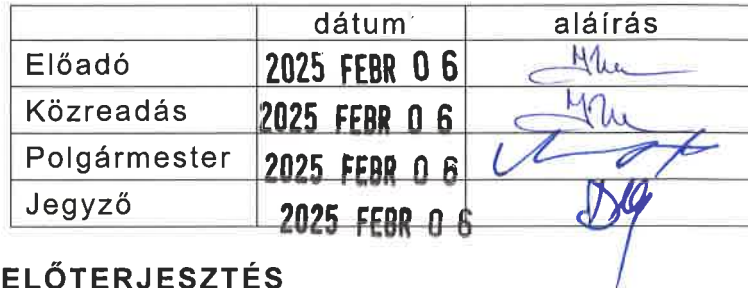 dátum aláírás
Előadó 2025 FEBR 06
Közreadás 2025 FEBR 06
Polgármester 2025 FEBR 06
Jegyző 2025 FEBR 06
ELŐTERJESZTÉS